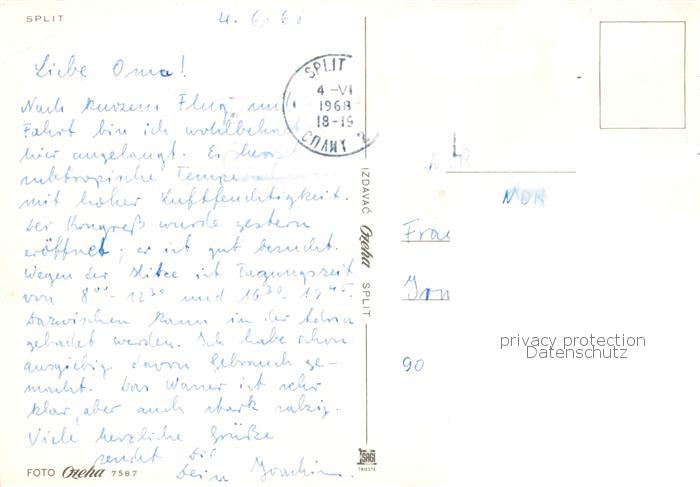 SPLIT
4. 6. 68
Liebe Oma!
Nach kurzem Flug und
Fahrt bin ich wohlbehal
hier angelangt. Es herrsc
subtropische Tempe
mit hoher Luftfeuchtigkeit.
Der Kongreß wurde gestern
eröffnet; er ist gut besucht.
Wegen der Hitze ist Tagungszeit
von 8⁰⁰-12³⁰ und 16³⁰-19⁴⁵.
Dazwischen kann in der Adria
gebadet werden. Ich habe schon
ausgiebig davon Gebrauch ge-
macht. Das Wasser ist sehr
klar, aber auch stark salzig.
Viele herzliche Grüße
sendet Dir
Dein Joachim.
FOTO Ozeha 7587
SPLIT
4-VI
1968
18-19
СПЛИТ 2
IZDAVAČ Ozeha SPLIT
TRIESTE
NDR
Frau
90
privacy protection
Datenschutz